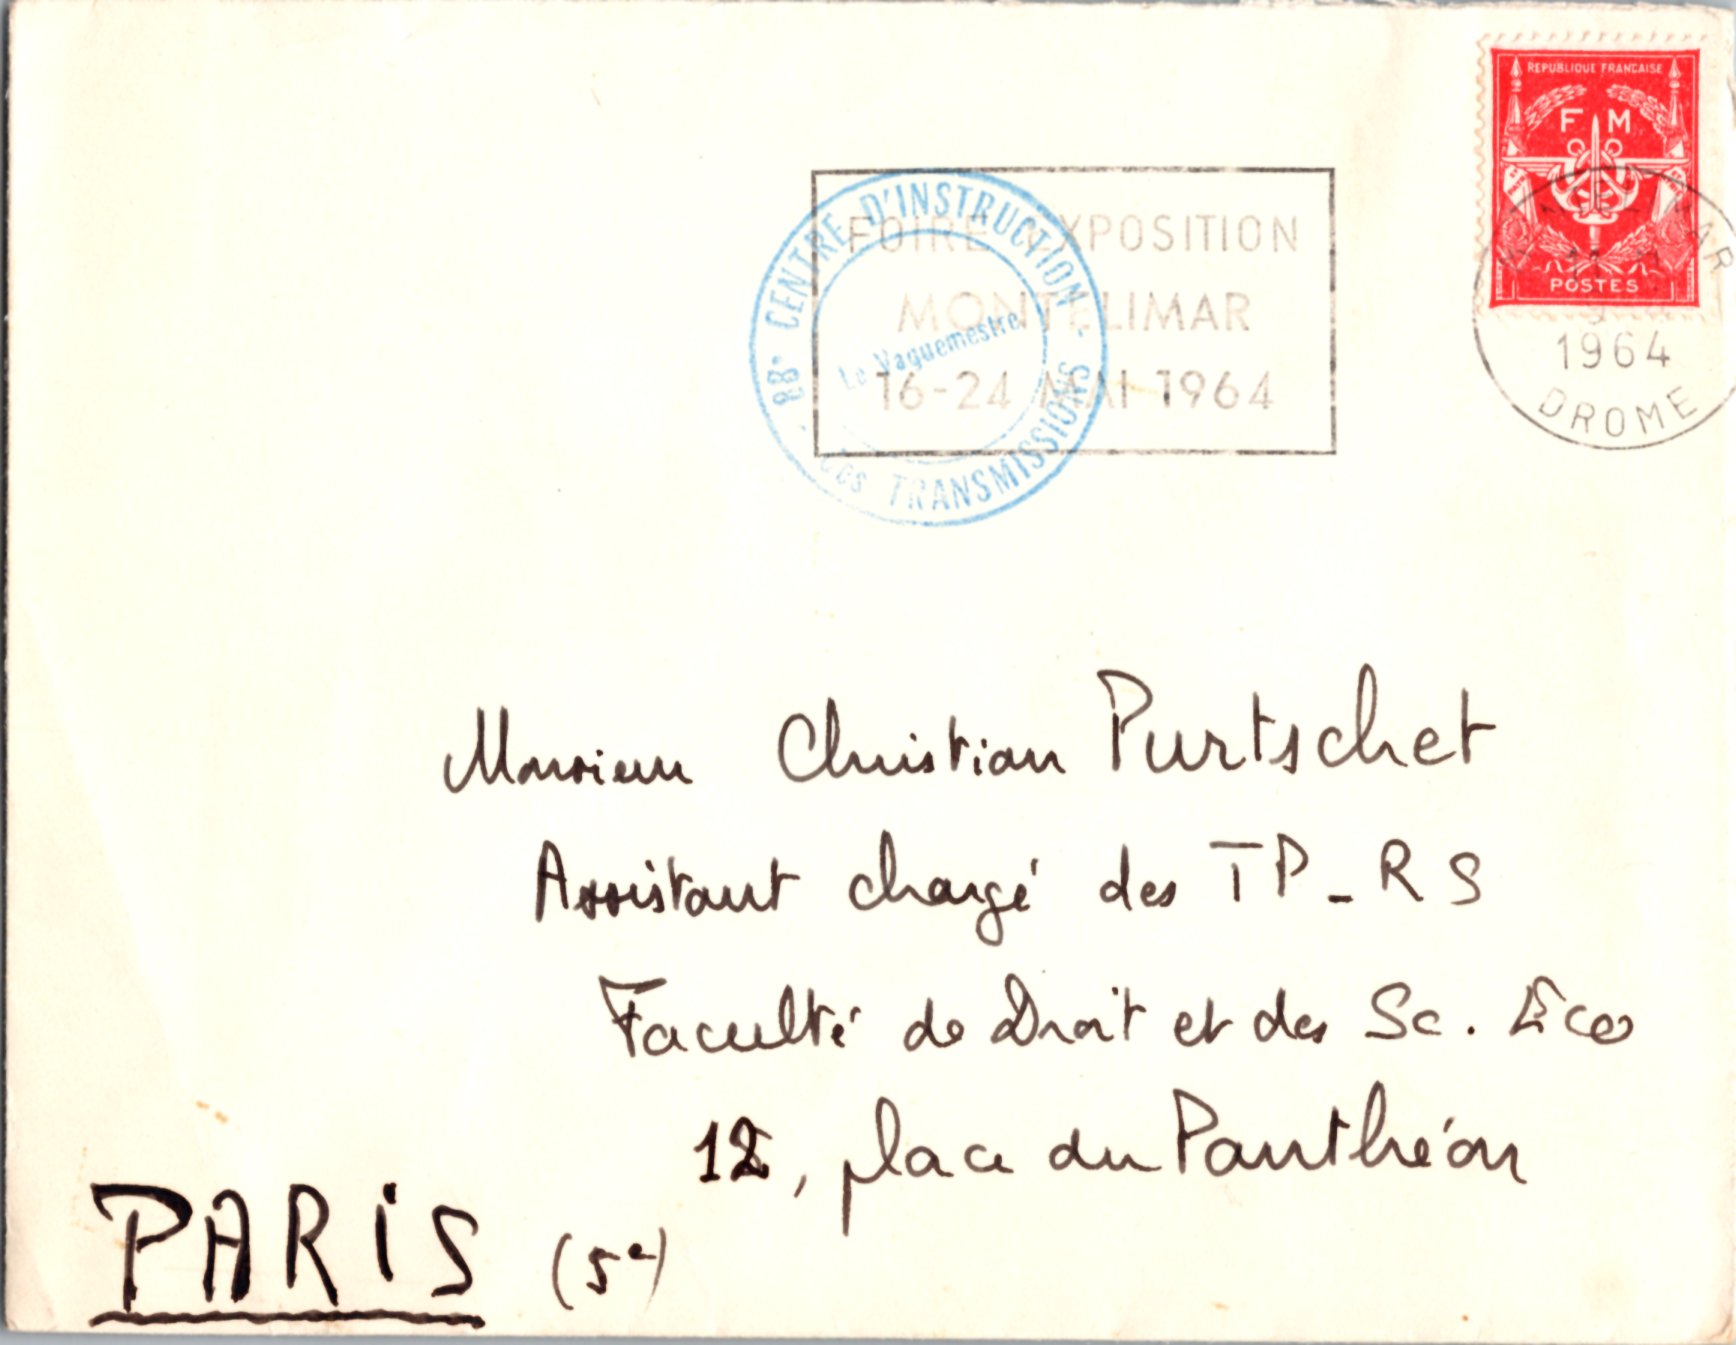 REPUBLIQUE FRANCAISE
F M
POSTES
1964
DROME
FOIRE EXPOSITION
MONTELIMAR
16-24 MAI 1964
88e CENTRE D'INSTRUCTION - des TRANSMISSIONS -
Le Vaguemestre
Monsieur Christian Purtschet
Assistant chargé des TP-RS
Faculté de Droit et des Sc. Eco
12, place du Panthéon
PARIS (5e)